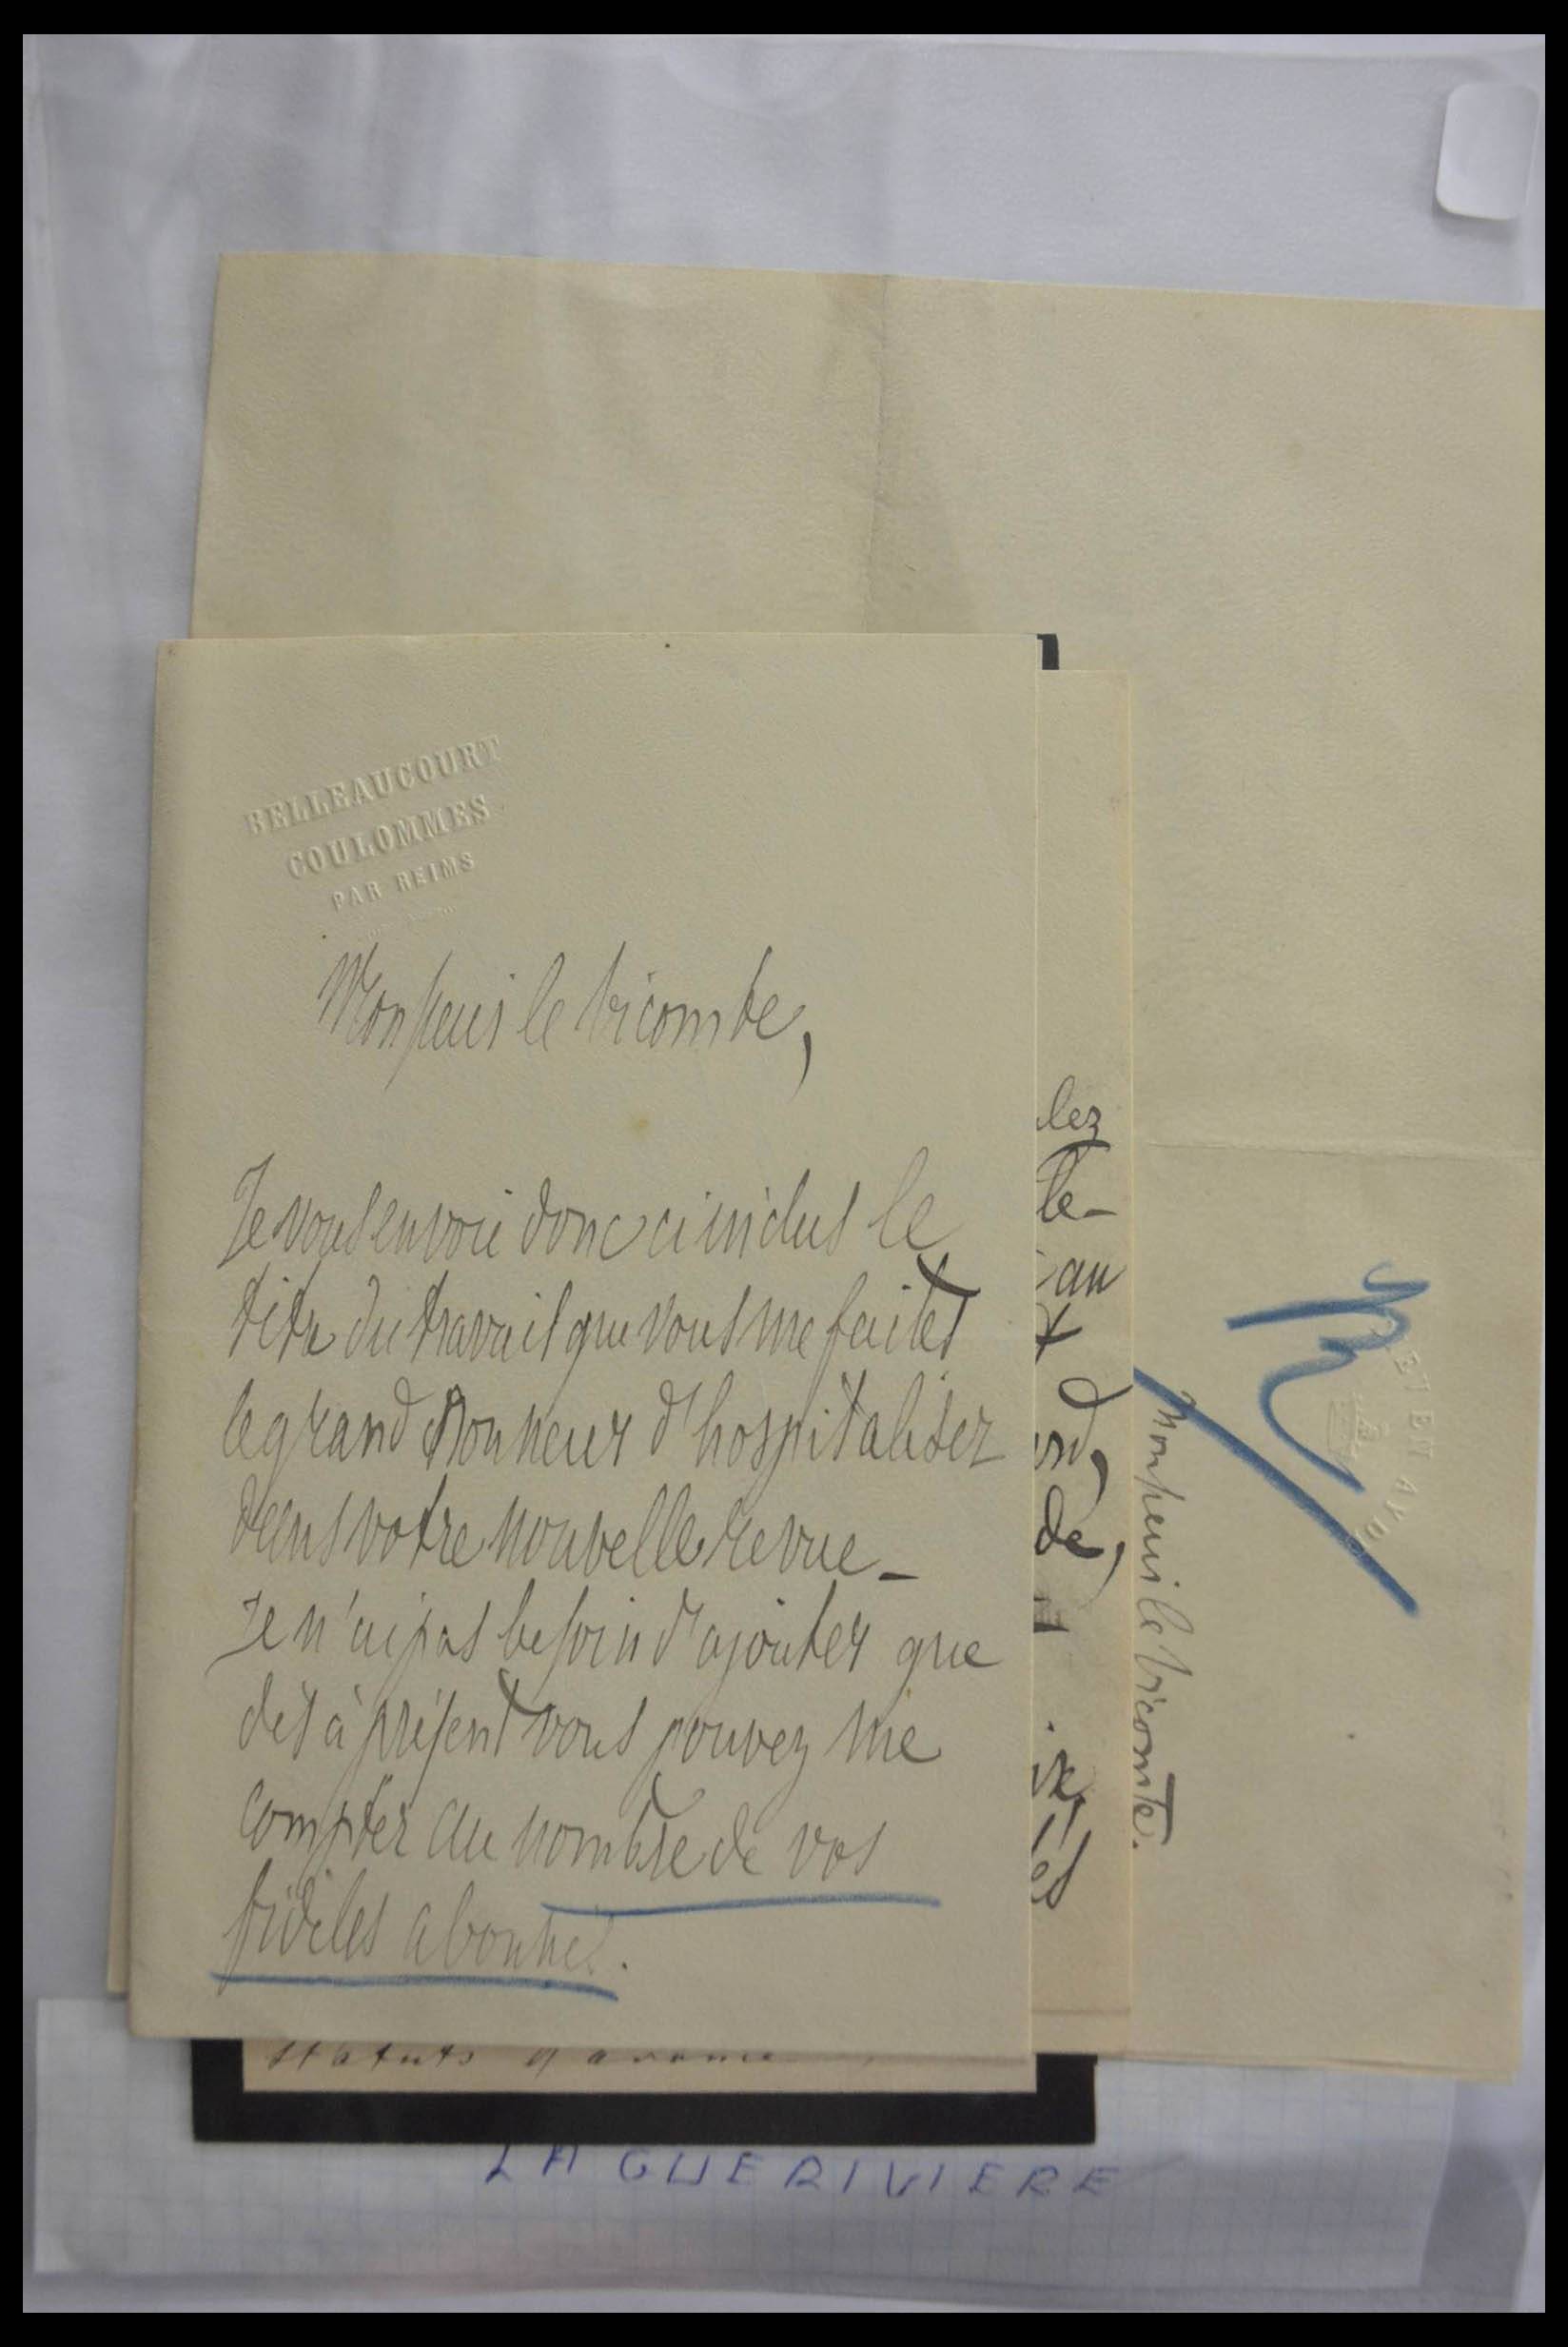 BELLEAUCOURT
COULOMMES
PAR REIMS
Monsieur le Vicomte,
Je vous envoie donc ci inclus le
titre du travail que vous me faites
le grand honneur d'hospitaliser
dans votre nouvelle revue_
Je n'ai pas besoin d'ajouter que
dès à présent vous pouvez me
compter au nombre de vos
fidèles abonnés.
lez
le-
au
de,
és
Monsieur le Vicomte.
statuts
LA GUERIVIERE